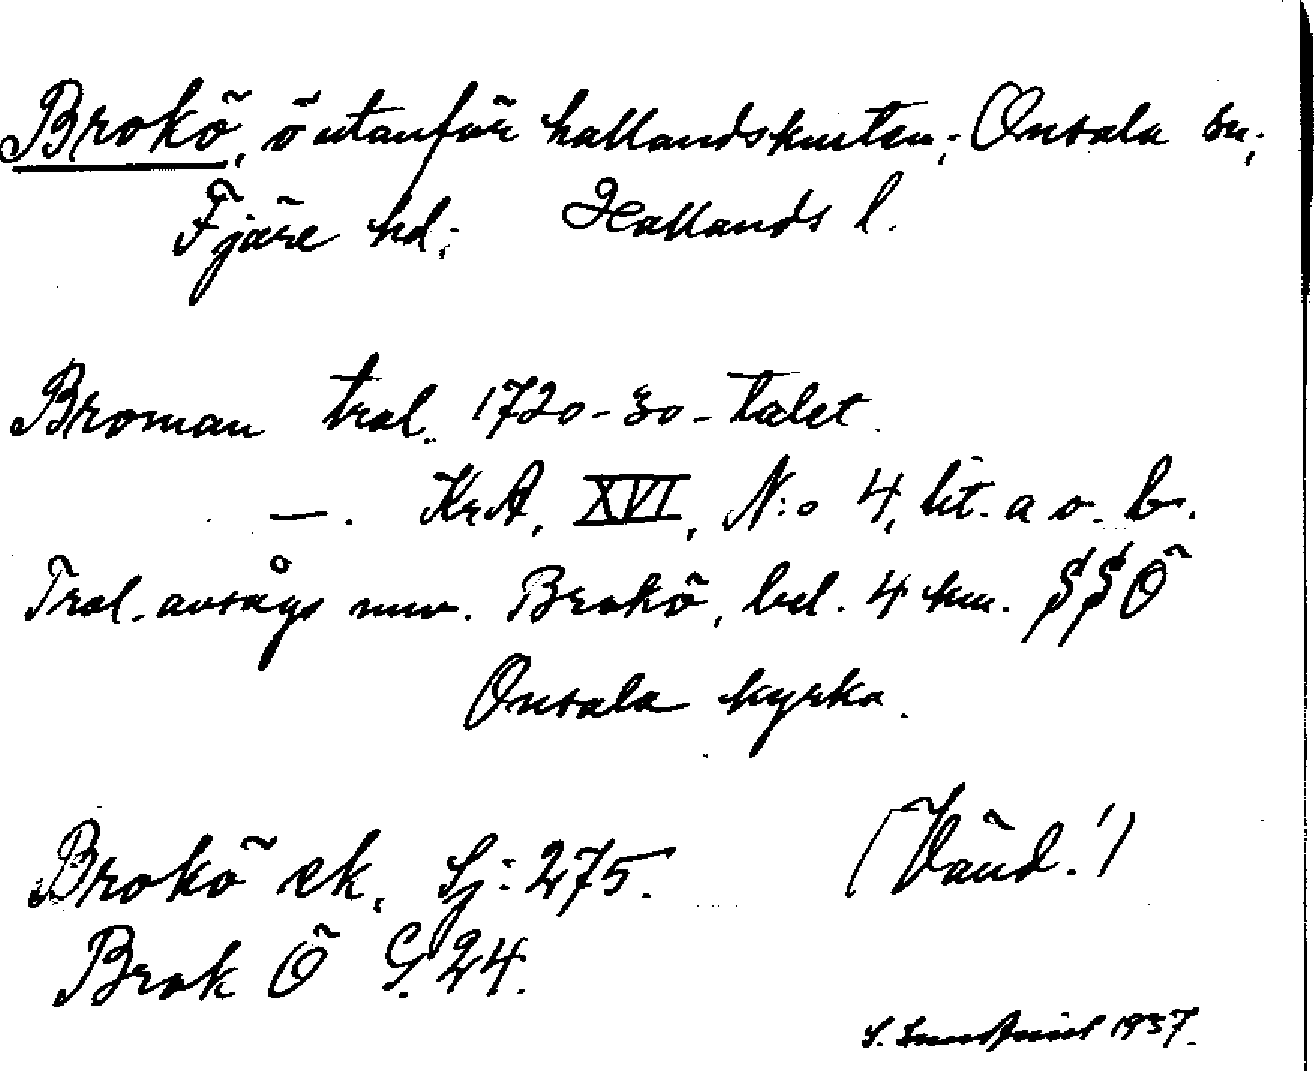 Brokö, ö utanför hallandskusten; Onsala sn;
Fjäre hd; Hallands l.
Broman tral. 1720-30-talet.
—. KrA, XVI, N:o 4, lit. a o. b.
Tral. avsågs nuv. Brokö, bel. 4 km. SSÖ
Onsala kyrka.
Brokö ek. Sj: 275.
(Vänd!)
Brok Ö S. 24.
S. 1937.